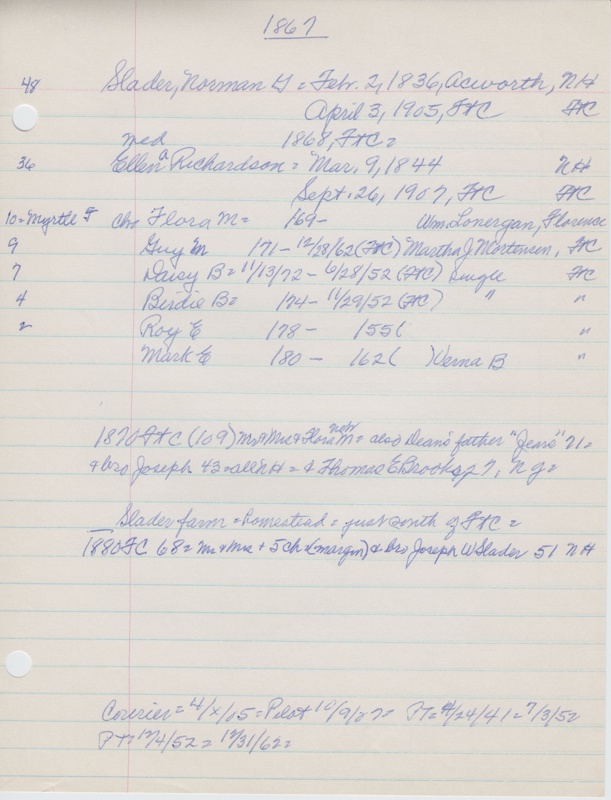 1867
48 Slader, Norman G = Feb. 2, 1836, Acworth, NH
April 3, 1905, FtC FtC
med 1868, FtC =
36 Ellen a Richardson = Mar. 9, 1844 NH
Sept. 26, 1907, FtC FtC
10 = Myrtle F Chn Flora M = 169 - Wm. Lonergan, Florence
9 Guy M 171 - 12/28/62 (FtC) Martha J Mortensen, FtC
7 Daisy B = 11/13/72 - 6/28/52 (FtC) Single FtC
4 Birdie B = 174 - 11/29/52 (FtC) " "
2 Roy E 178 - 155( "
Mark E 180 - 162( ) Verna B "
1870 FtC (109) Mr & Mrs & Flora M = also Dean's father "Jears" 71 =
& bro Joseph 43 = all NH = & Thomas E Brooks 7, NJ =
Slader farm = homestead = just south of FtC =
1880 FC 68 = Mr & Mrs + 5 ch (margin) & bro Joseph W Slader 51 NH
Courier = 4/x/05 = Pilot 10/9/07 = PT = 4/24/41 = 7/3/52
PT = 12/4/52 = 12/31/62 =